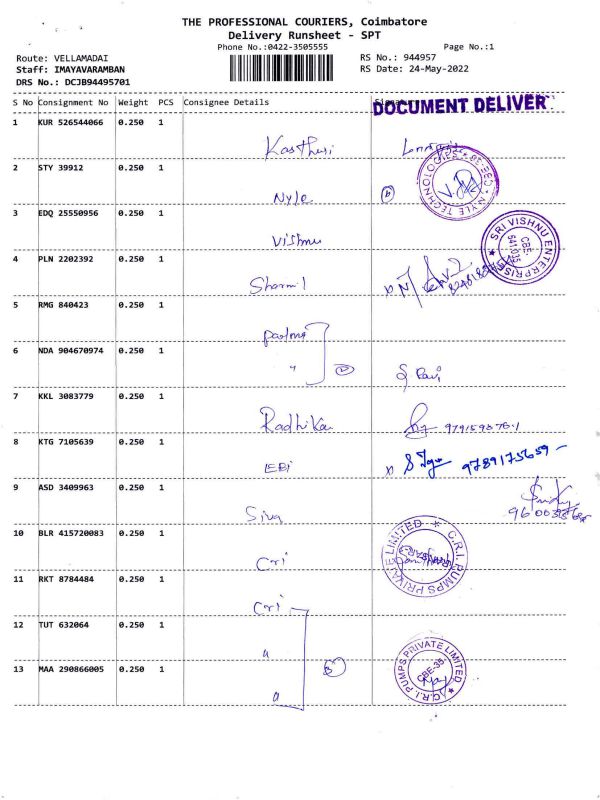 THE PROFESSIONAL COURIERS, Coimbatore
Delivery Runsheet - SPT
Phone No.:0422-3505555
Page No.:1
Route: VELLAMADAI
RS No.: 944957
Staff: IMAYAVARAMBAN
RS Date: 24-May-2022
DRS No.: DCJB94495701
S No Consignment No Weight PCS Consignee Details
DOCUMENT DELIVER
1 KUR 526544066 0.250 1
Kasthuri
2 STY 39912 0.250 1
Nyle
NYLE TECHNOLOGIES
3 EDQ 25550956 0.250 1
Vishnu
SRI VISHNU ENTERPRISES
CBE-
641 035
4 PLN 2202392 0.250 1
Sharmil
5 RMG 840423 0.250 1
6 NDA 904670974 0.250 1
"
7 KKL 3083779 0.250 1
Radhika
8 KTG 7105639 0.250 1
EBI
9789175659
9 ASD 3409963 0.250 1
Siva
10 BLR 415720083 0.250 1
Cri
C.R.I. PUMPS PRIVATE LIMITED
11 RKT 8784484 0.250 1
Cri
12 TUT 632064 0.250 1
13 MAA 290866005 0.250 1
C.R.I. PUMPS PRIVATE LIMITED
CBE-35